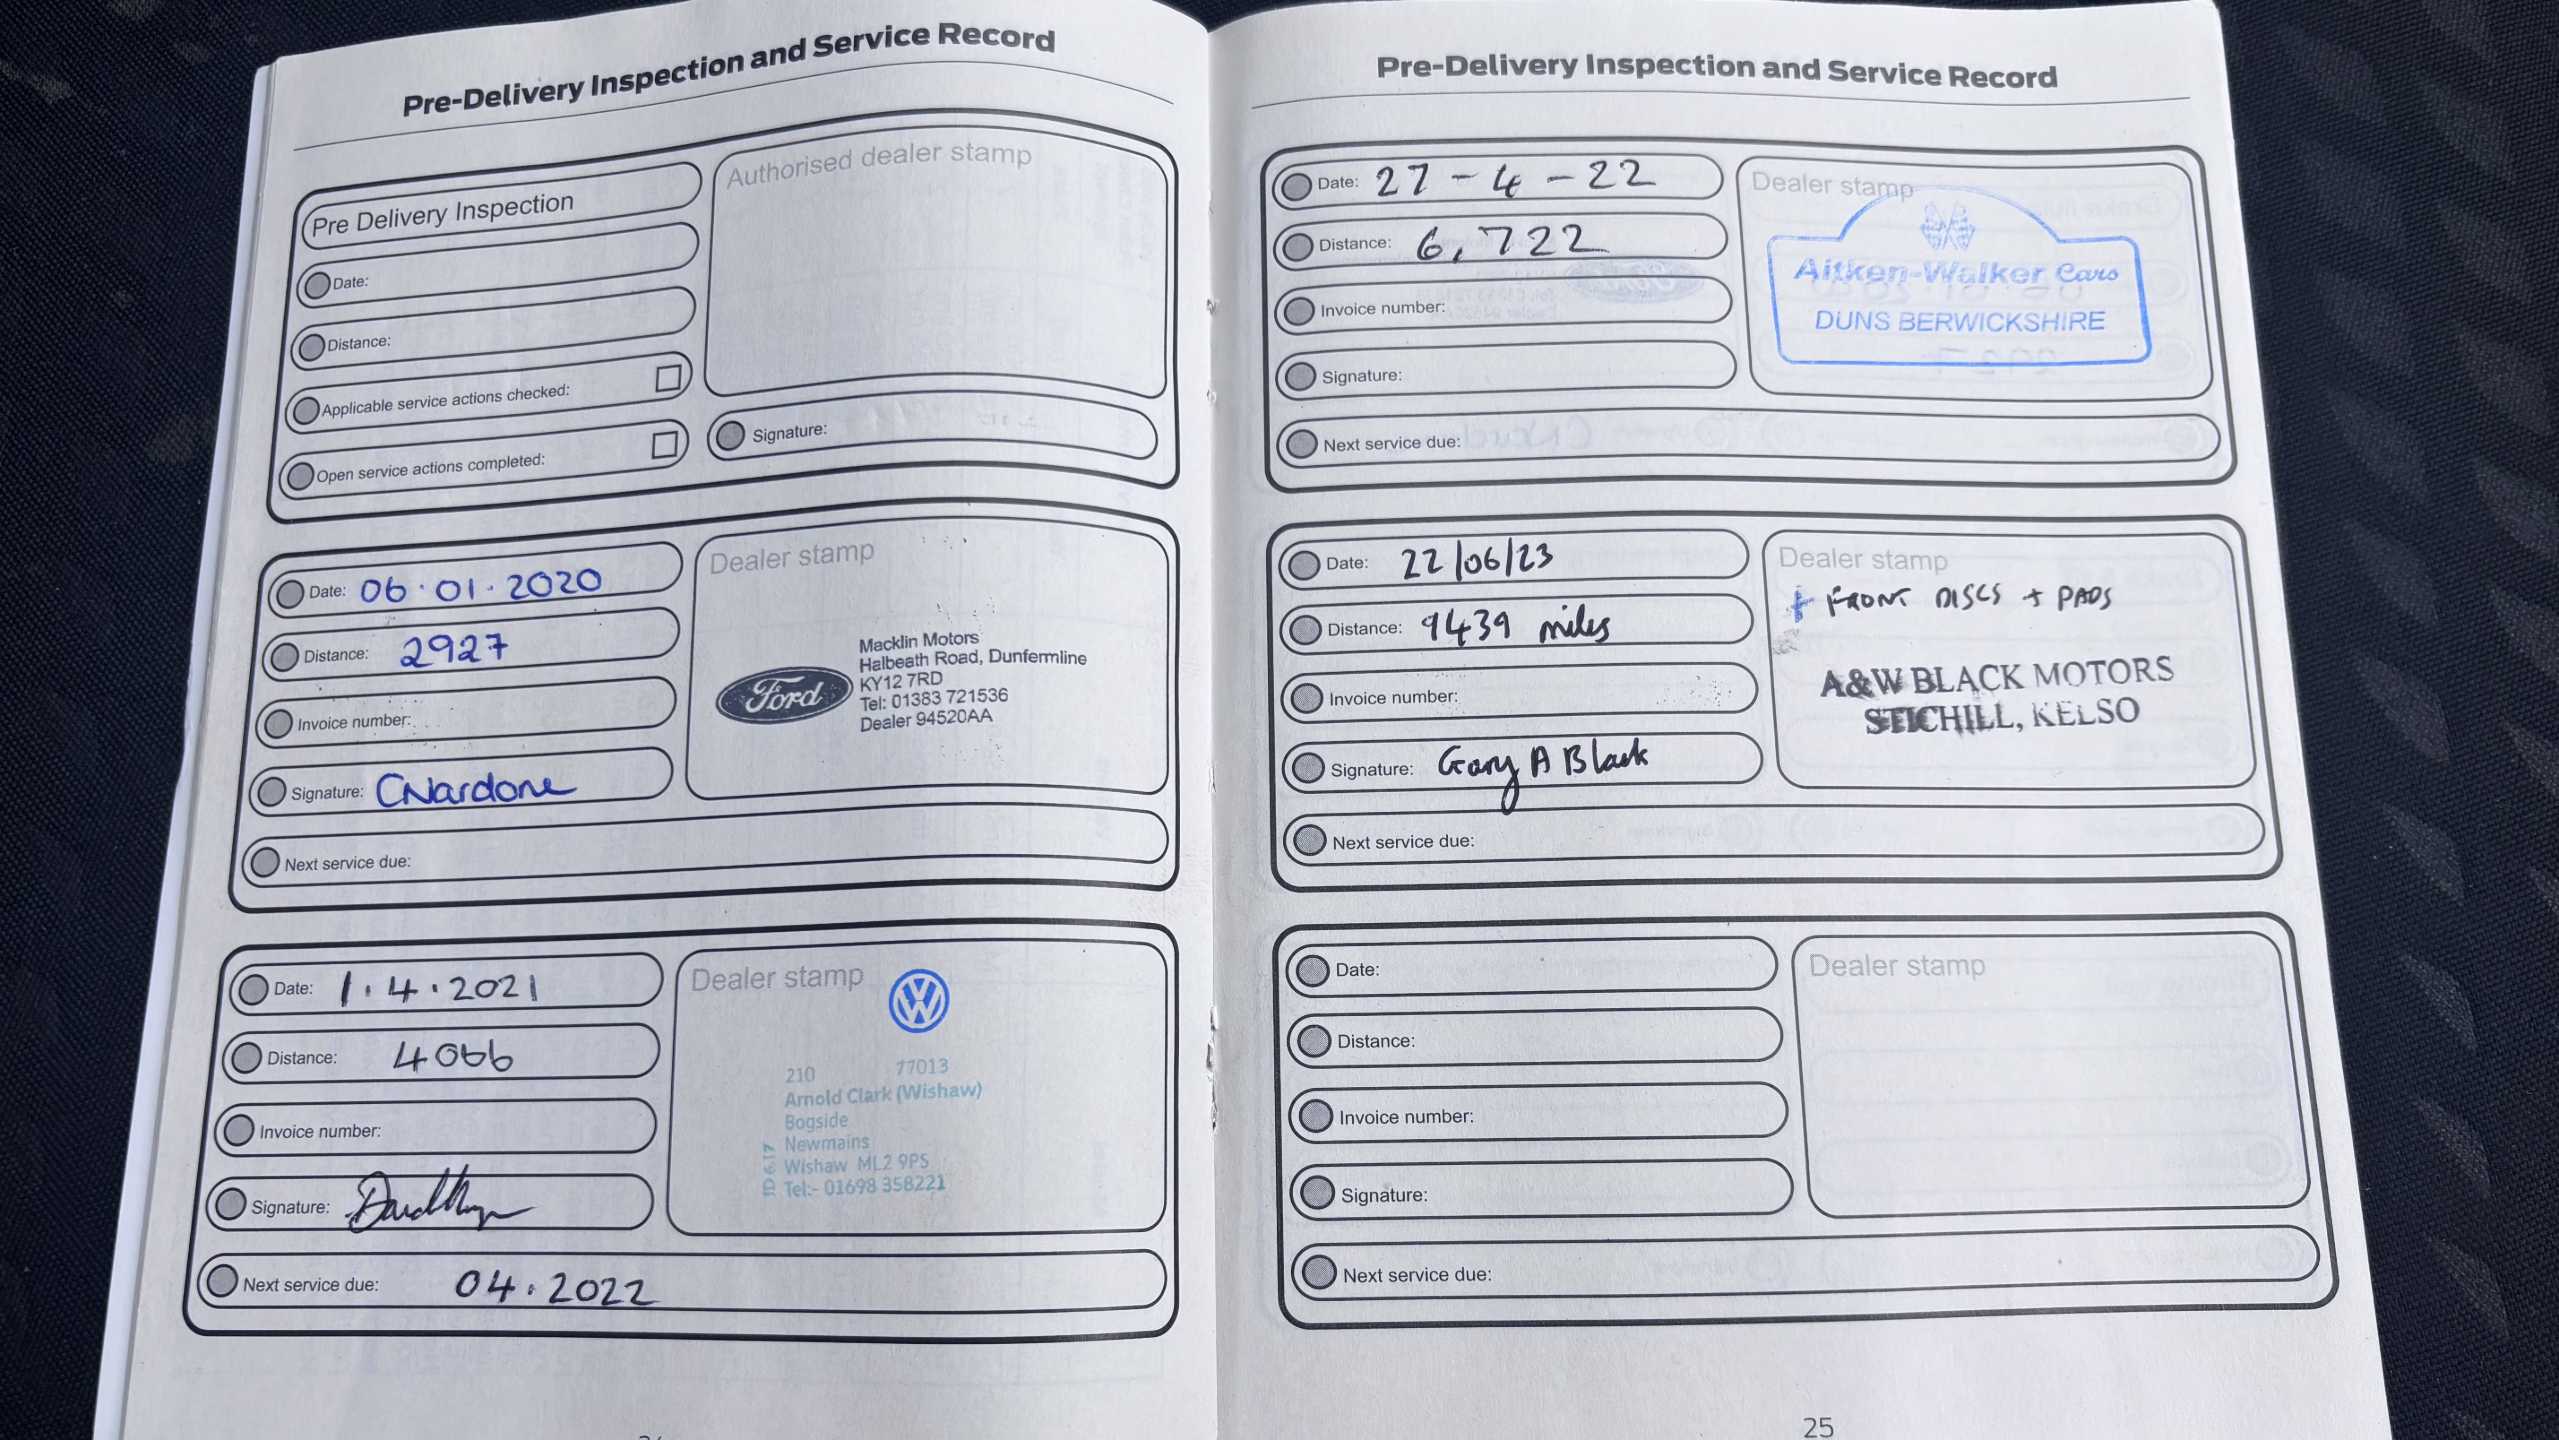 Pre-Delivery Inspection and Service Record
Pre Delivery Inspection
Date:
Distance:
Applicable service actions checked:
Open service actions completed:
Authorised dealer stamp
Signature:
Date: 06.01.2020
Distance: 2927
Invoice number:
Signature: CNardone
Next service due:
Dealer stamp
Ford
Macklin Motors
Halbeath Road, Dunfermline
KY12 7RD
Tel: 01383 721536
Dealer 94520AA
Date: 1.4.2021
Distance: 4066
Invoice number:
Signature:
Next service due: 04.2022
Dealer stamp
VW
210 77013
Arnold Clark (Wishaw)
Bogside
Newmains
Wishaw ML2 9PS
Tel:- 01698 358221
ID 617
Pre-Delivery Inspection and Service Record
Date: 27-4-22
Distance: 6,722
Invoice number:
Signature:
Next service due:
Dealer stamp
Aitken-Walker Cars
DUNS BERWICKSHIRE
Date: 22/06/23
Distance: 9439 miles
Invoice number:
Signature: Gary A Black
Next service due:
Dealer stamp
+ FRONT DISCS + PADS
A&W BLACK MOTORS
STICHILL, KELSO
Date:
Distance:
Invoice number:
Signature:
Next service due:
Dealer stamp
25